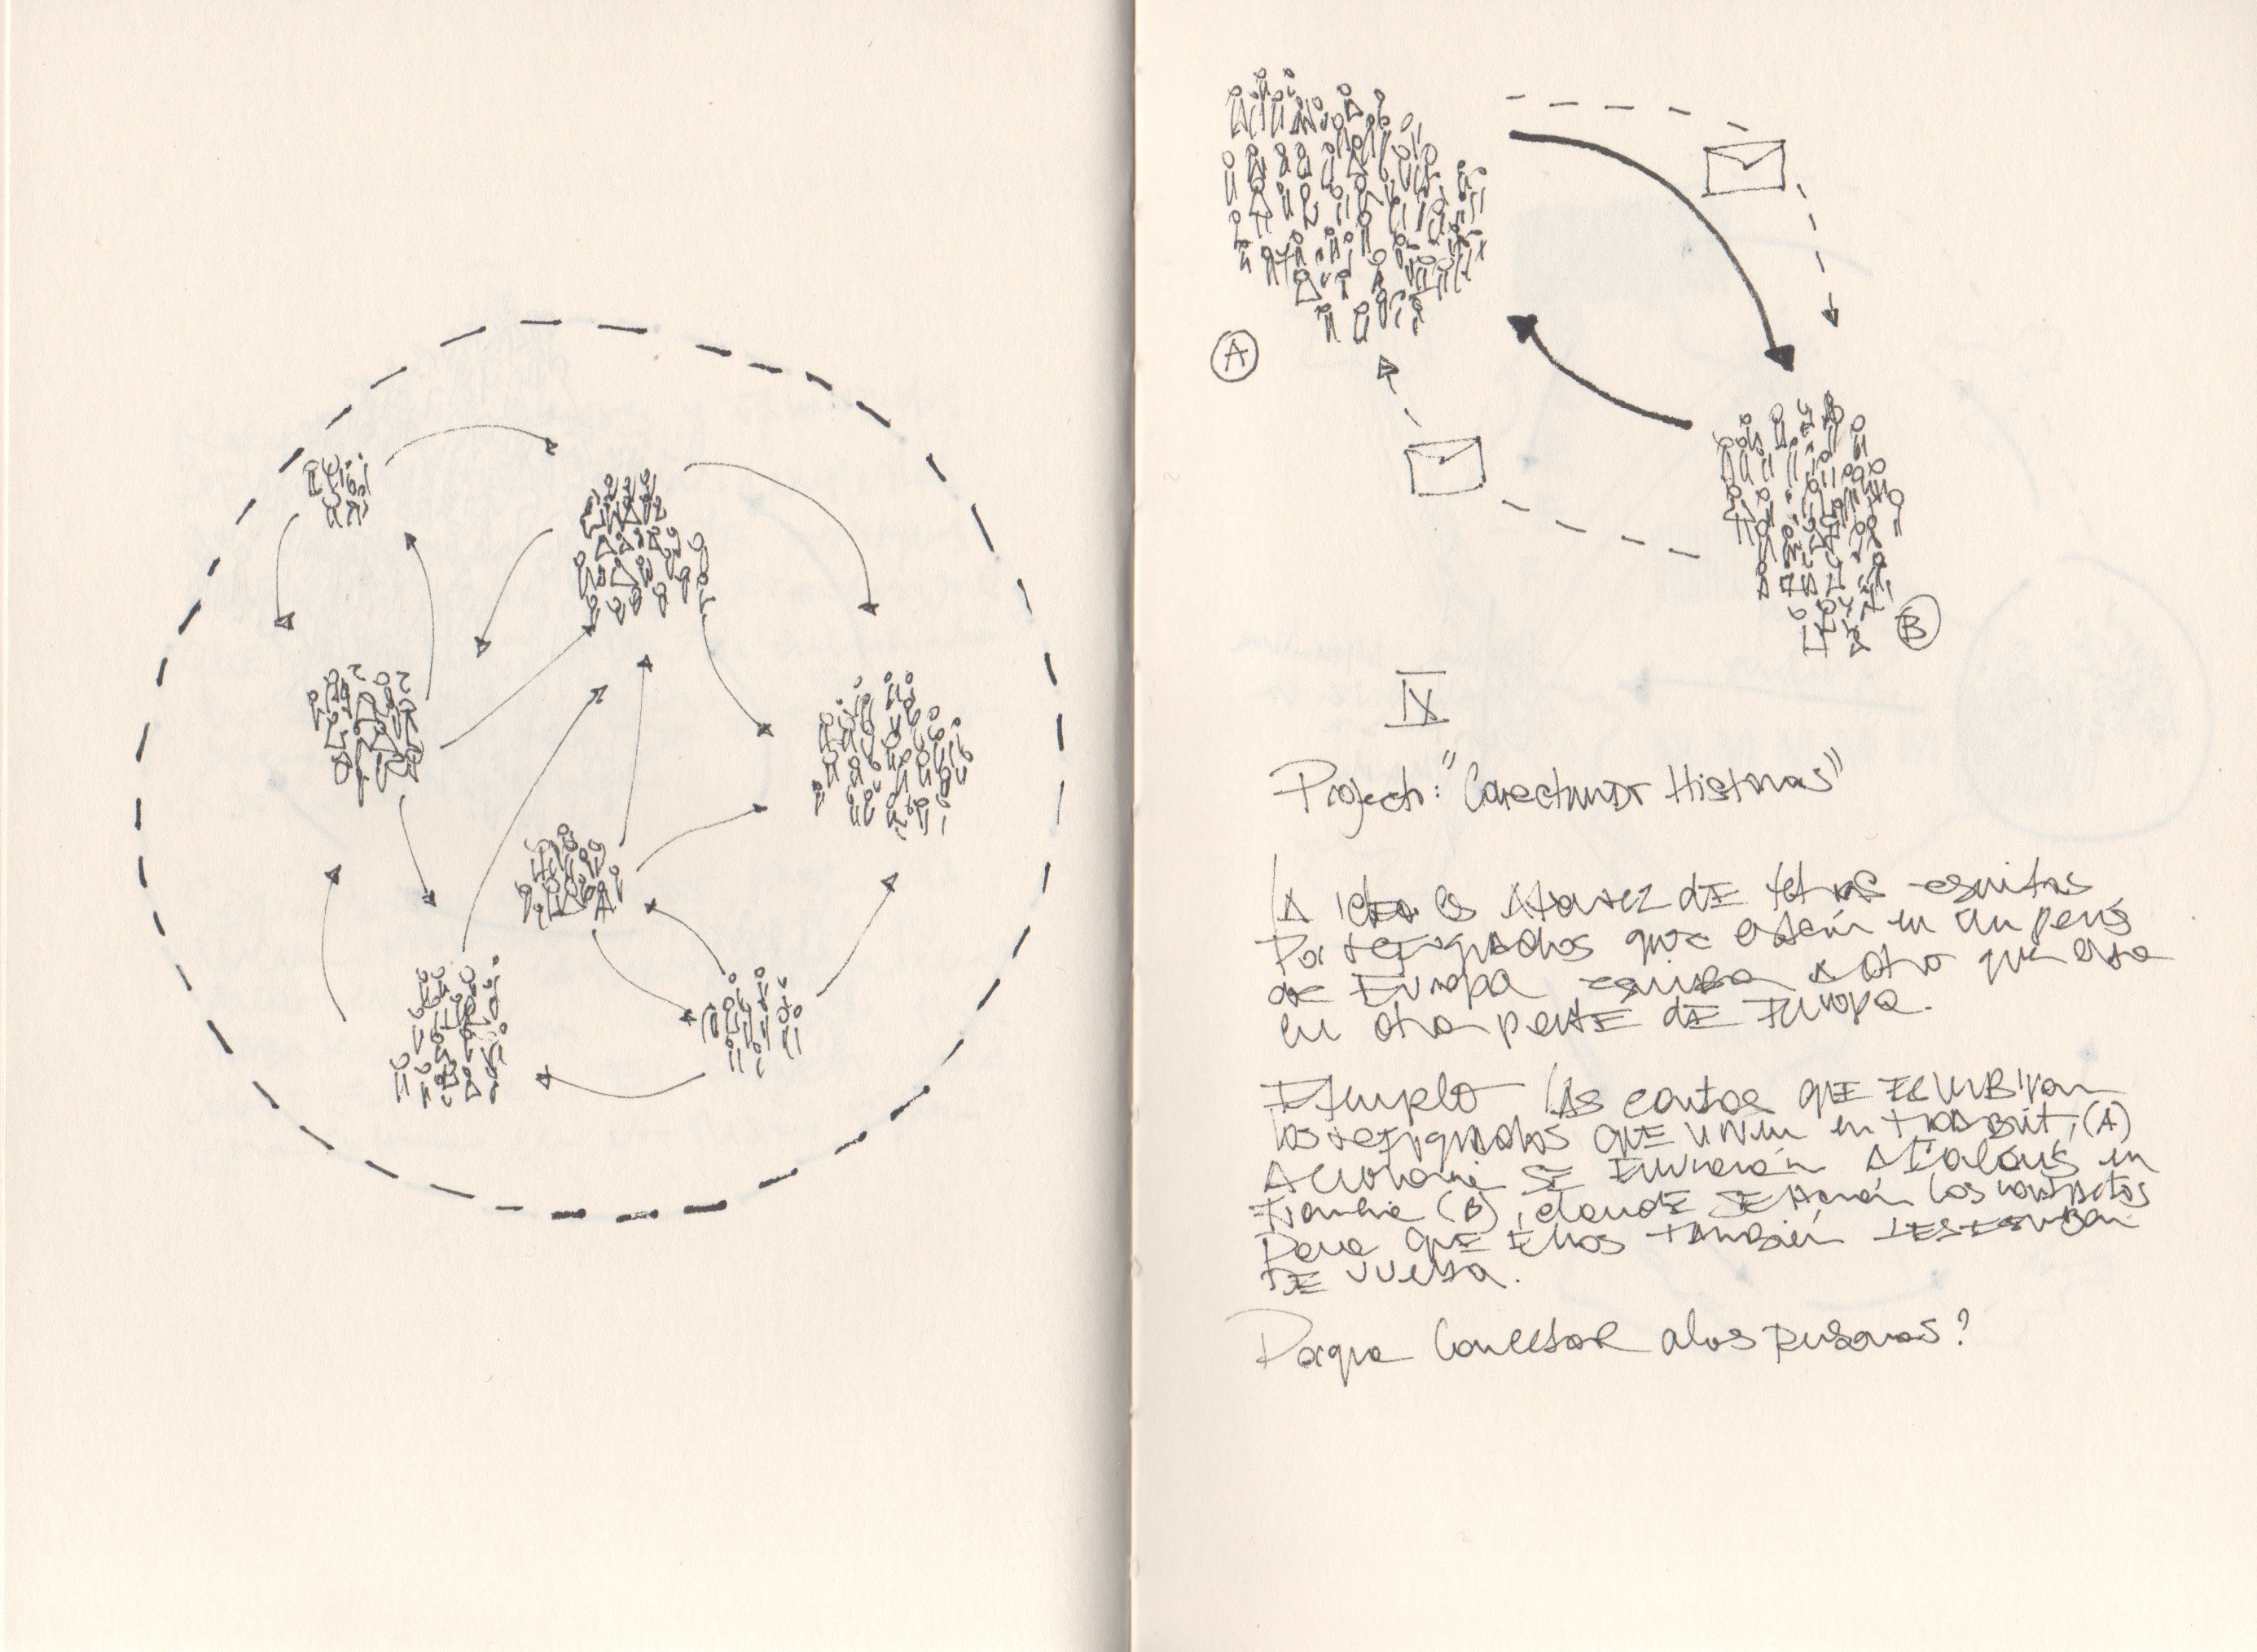 A
B
IX
Project: "Conectando Historias"
La idea es atravez de letras escritas
Por refugiados que estén en un pais
de Europa escriba a otro que esta
en otra parte de Europa.
Ejemplo las cartas que escribiran
los refugiados que viven en (A)
Alemania se enviarán a Calais en
Francia (B), donde se harán los contactos
Para que ellos también les escriban
de vuelta.
Porque Conectar a las personas?